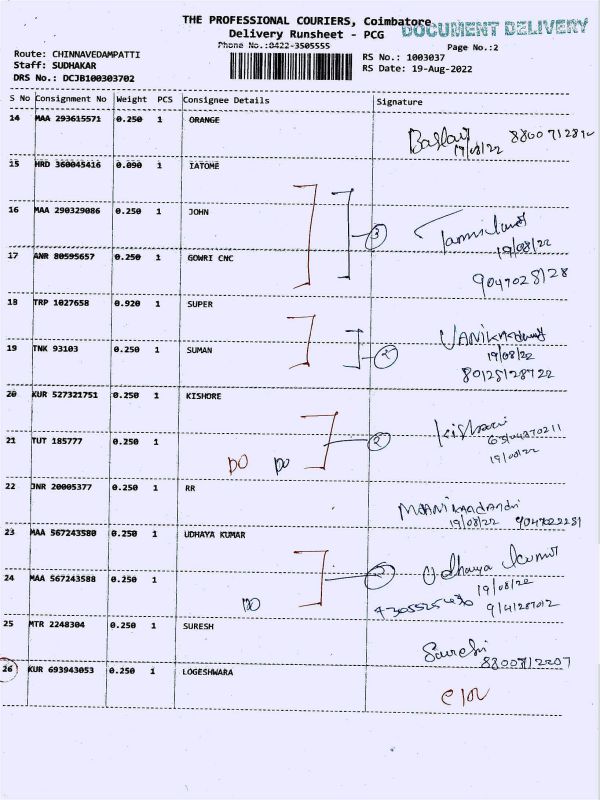 THE PROFESSIONAL COURIERS, Coimbatore
DOCUMENT DELIVERY
Delivery Runsheet - PCG
Phone No.:0422-3505555
Page No.:2
Route: CHINNAVEDAMPATTI
RS No.: 1003037
Staff: SUDHAKAR
RS Date: 19-Aug-2022
DRS No.: DCJB100303702
S No Consignment No Weight PCS Consignee Details Signature
14 MAA 293615571 0.250 1 ORANGE
19/08/22
15 HRD 360045416 0.090 1 IATOME
16 MAA 290329086 0.250 1 JOHN
3
19/08/22
17 ANR 80595657 0.250 1 GOWRI CNC
9047028128
18 TRP 1027658 0.920 1 SUPER
19/08/22
19 TNK 93103 0.250 1 SUMAN
2
80125128722
20 KUR 527321751 0.250 1 KISHORE
21 TUT 185777 0.250 1
DO DO
2
19/08/22
22 JNR 20005377 0.250 1 RR
19/08/22
23 MAA 567243580 0.250 1 UDHAYA KUMAR
Udhaya Kumar
24 MAA 567243588 0.250 1
DO
2
19/08/22
25 MTR 2248304 0.250 1 SURESH
Suresh
26 KUR 693943053 0.250 1 LOGESHWARA